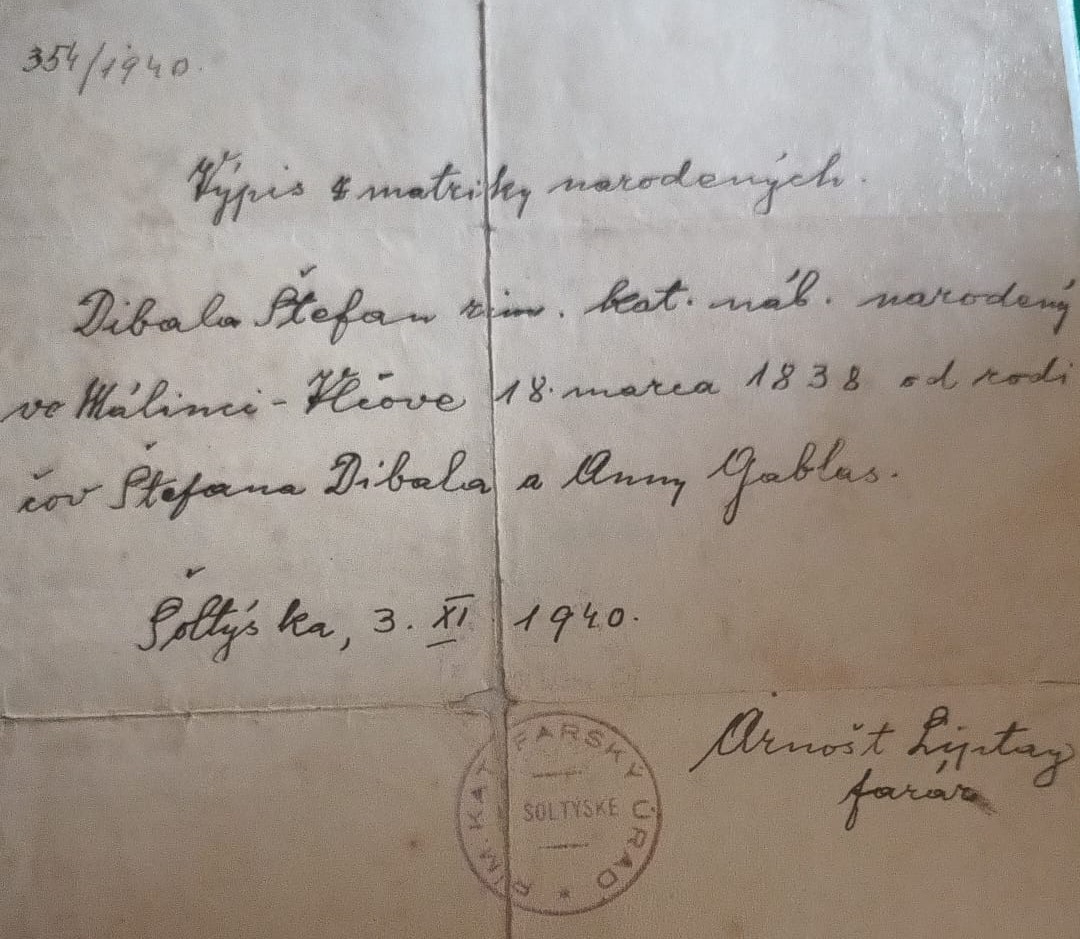 354/1940.
Výpis z matriky narodených.
Dibala Štefan rim. kat. náb. narodený
ve Málinci - Hčove 18. marca 1838 od rodi
čov Štefana Dibala a Anny Gablas.
Šoltýska, 3. XI 1940.
Arnošt Liptay
farár
RÍM. KAT. FARSKÝ ÚRAD *
ŠOLTÝSKE